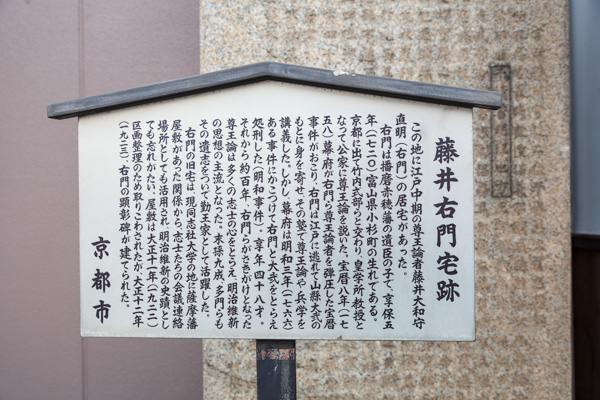 藤井右門宅跡
この地に江戸中期の尊王論者藤井大和守
直明（右門）の居宅があった。
右門は播磨赤穂藩の遺臣の子で、享保五
年（一七二〇）富山県小杉町の生れである。
京都に出て竹内式部らと交わり、皇学所教授と
なって公家に尊王論を説いた。宝暦八年（一七
五八）幕府が右門ら尊王論者を弾圧した宝暦
事件がおこり、右門は江戸に逃れて山県大弐の
もとに身を寄せ、その塾で尊王論や兵学を
講義した。しかし、幕府は明和三年（一七六六）
ある事件にかこつけて右門と大弐をとらえ
処刑した（明和事件）。享年四十八才。
それから約百年、右門らがさきがけとなった
尊王論は多くの志士の心をとらえ、明治維新
の思想の主流となった。末孫九成、多門らも
その遺志をついで勤王家として活躍した。
右門の旧宅は、現同志社大学の地に薩摩藩
屋敷があった関係から、志士たちの会議連絡
場所としても活用され、明治維新の史蹟とし
ても忘れがたい。屋敷は大正十一年（一九二二）
区画整理のため取りこわされたが、大正十二年
（一九二三）、右門の顕彰碑が建てられた。
京都市